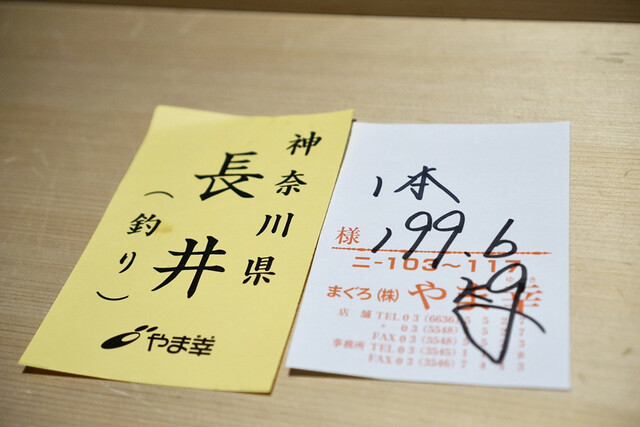 神奈川県
長井
(釣り)
やま幸
1本
199.6
様
ニ-103～117
まぐろ(株) やま幸
店舗 TEL 03 (6636)
〃 03 (5548)
FAX 03 (5548)
事務所 TEL 03 (3545)
FAX 03 (3546)